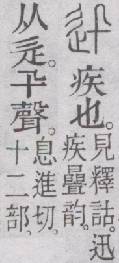 迅 疾也。見釋詁。迅
疾疊韵。
从辵。卂聲。息進切。
十二部。